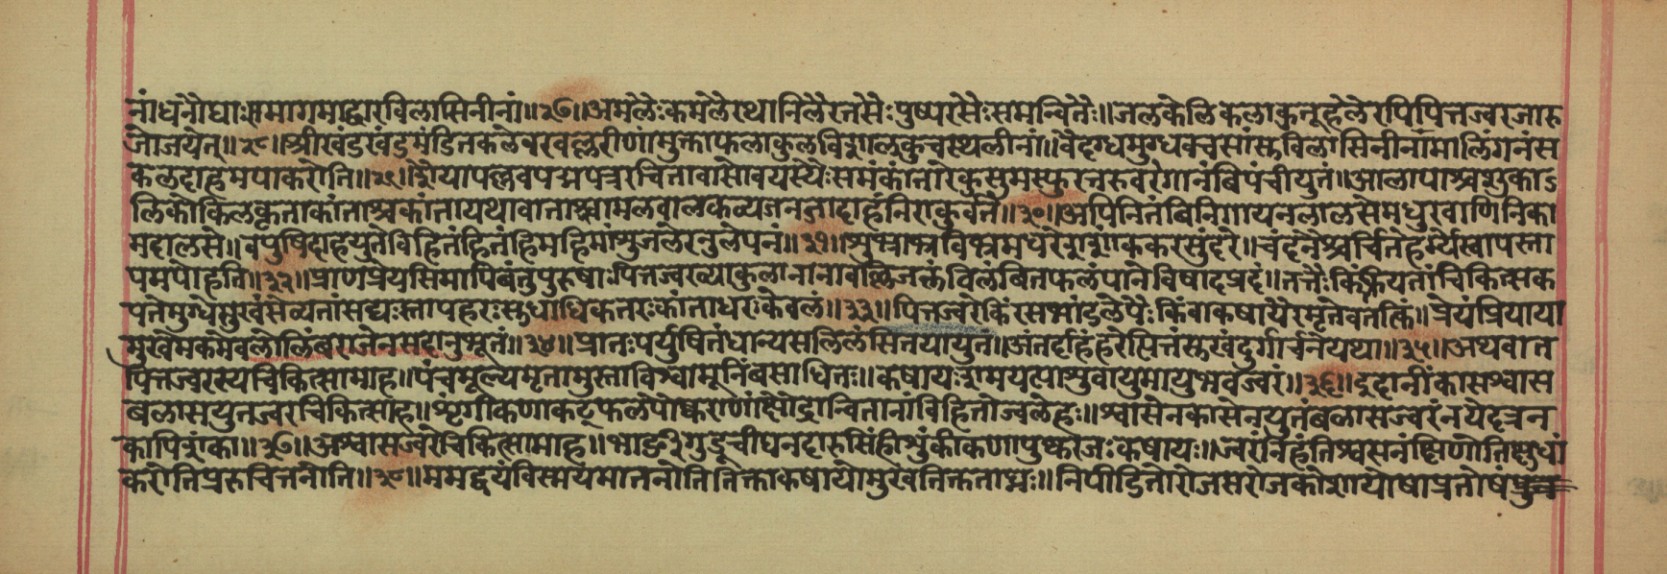 नां धनौघाः समागमाद्वारविलासिनीनां॥२७॥अमलैः कमलैरथानिलैरलसैः पुष्परसैः समन्वितैः॥जलकेलिकलाकुतूहलैरपिपित्तज्वरजारु
जोजयेत्॥२८॥श्रीखंडखंडमंडितकलेवरवल्लरीणां मुक्ताफलाकुलविशालकुचस्थलीनां॥वैदग्धमुग्धवचसांसुविलासिनीनामालिंगनंस
कलदाहमपाकरोति॥२९॥शय्यापल्लवपद्मपत्ररचितावासोवयस्यैः समंकांतारेकुसुमस्फुरत्तरुवरेगानंविपंचीयुतं॥आलापाश्चशुकाऽ
लिकोकिलकृताकांताश्चकांतायथावाताश्चामलवालकव्यजनजादाहंनिराकुर्वते॥३०॥अपिनितंबिनिगायनलालसेमधुरवाणिनिका
मदालसे॥वपुषिदाहयुतेविहितंहितंहिमहिमांशुजलैरनुलेपनं॥३१॥शुभ्राभ्रविभ्रमधरेशशांककरसुंदरे॥चंदनैश्चर्चितेहर्म्येस्वापस्ता
पमपोहति॥३२॥प्राणप्रेयसिमापिबंतुपुरुषाः पित्तज्वरव्याकुलानानावल्लिजलंविलंबितफलंपानेविषादप्रदं॥तत्तैः किंक्रियतांचिकित्सक
पतेमुग्धेमुखंसेव्यतांसद्यः स्तापहरः सुधाधिकतरः कांताधरः केवलं॥३३॥पित्तज्वरेकिंरसभांडलेपैः किंवाकषायैरमृतेनवाकिं॥प्रेयंप्रियाया
मुखमेकमेवलोलिंबराजेनसदानुभूतं॥३४॥प्रातः पर्युषितंधान्यसलिलंसितयायुतं॥अंतर्दाहंहरेत्पित्तंसुखंदुर्गार्चनंयथा॥३५॥अथवात
पित्तज्वरस्यचिकित्सामाह॥पंचमूल्यमृतामुस्ताविश्वाभूनिंबसाधितः॥कषायः शमयत्याशुवायुमायुभवंज्वरं॥३६॥इदानींकासश्वास
बलासयुतज्वरचिकित्साह॥शृंगीकणाकट्फलपौष्कराणांक्षौद्रान्वितानांविहितोवलेहः॥श्वासेनकासेनयुतंबलासज्वरंजयेदत्रन
कापिशंका॥३७॥अश्वासज्वरेचिकित्सामाह॥भार्ङ्गीगुडूचीघनदारुसिंहीशुंठीकणापुष्करजः कषायः॥ज्वरंनिहंतिश्वसनंक्षिणोतिक्षुधां
करोतिप्ररुचितनोति॥३८॥ममद्वयंविस्मयमातनोतितिक्ताकषायोमुखतिक्तताघ्नः॥निपीडितोरोजसरोजकोशायोषाप्रतोषं